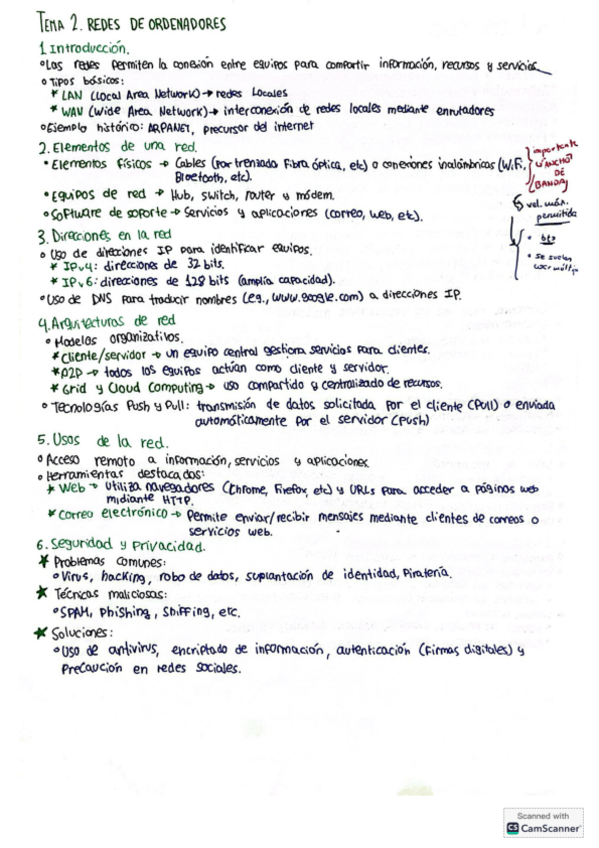 TEMA 2. REDES DE ORDENADORES
1. Introducción.
Las redes permiten la conexión entre equipos para compartir información, recursos y servicios
Tipos básicos:
* LAN (Local Area Network) → redes Locales
* WAN (Wide Area Network) → interconexión de redes locales mediante enrutadores
Ejemplo histórico: ARPANET, precursor del internet
2. Elementos de una red.
• Elementos físicos → Cables (par trenzado Fibra óptica, etc) o conexiones inalámbricas (WiFi,
Bluetooth, etc).
importante
"ANCHO"
DE
BANDA
vel. máx.
permitida
• bps
• se suelen
usar múltip
• Equipos de red → Hub, switch, router y módem.
• Software de soporte → Servicios y aplicaciones (correo, web, etc).
3. Direcciones en la red
Uso de direciones IP para identificar equipos.
* IPv4: direciones de 32 bits.
* IPv6: direciones de 128 bits (amplia capacidad).
Uso de DNS para traducir nombres (eg., www.google.com) a direcciones IP.
4. Arquitecturas de red
Modelos organizativos.
* Cliente/servidor → un equipo central gestiona servicios para clientes.
* P2P → todos los equipos actúan como cliente y servidor.
* Grid y Cloud Computing → uso compartido y centralizado de recursos.
Tecnologías Push y Pull: transmisión de datos solicitada por el cliente (Pull) o enviada
automáticamente por el servidor (Push)
5. Usos de la red.
Acceso remoto a información, servicios y aplicaciones.
Herramientas destacadas:
* Web → Utiliza navegadores (Chrome, Firefox, etc) y URLs para acceder a páginas web
midiante HTTP.
* Correo electrónico → Permite enviar/recibir mensajes mediante clientes de correos o
servicios web.
6. Seguridad y Privacidad.
* Problemas comunes:
Virus, hacking, robo de datos, suplantación de identidad, Piratería.
* Técnicas maliciosas:
SPAM, Phishing, Sniffing, etc.
* Soluciones:
Uso de antivirus, encriptado de información, autenticación (firmas digitales) y
Precaución en redes sociales.
Scanned with
CS CamScanner